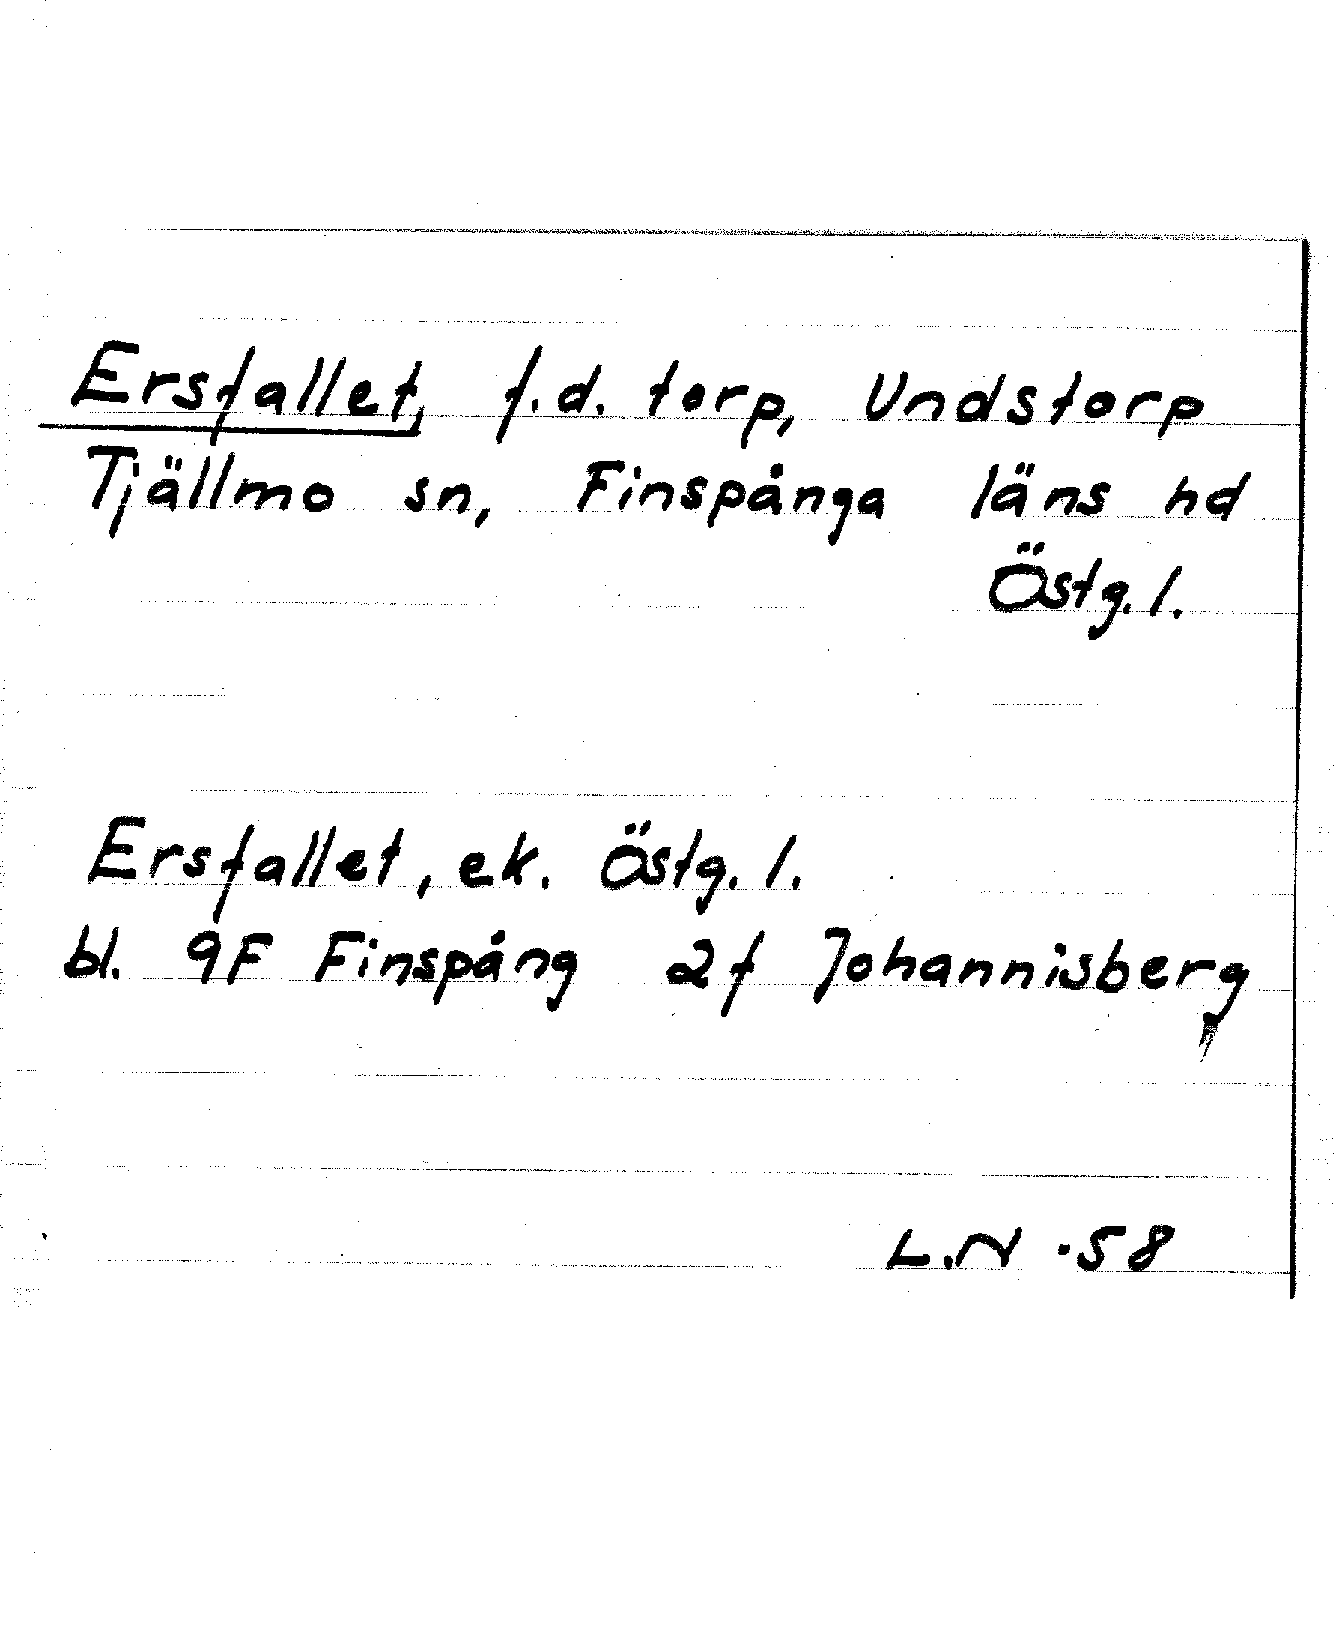 Ersfallet, f.d. torp, Undstorp
Tjällmo sn, Finspånga läns hd
Östg. l.
Ersfallet, ek. Östg. l.
bl. 9F Finspång 2f Johannisberg
L.N ·58